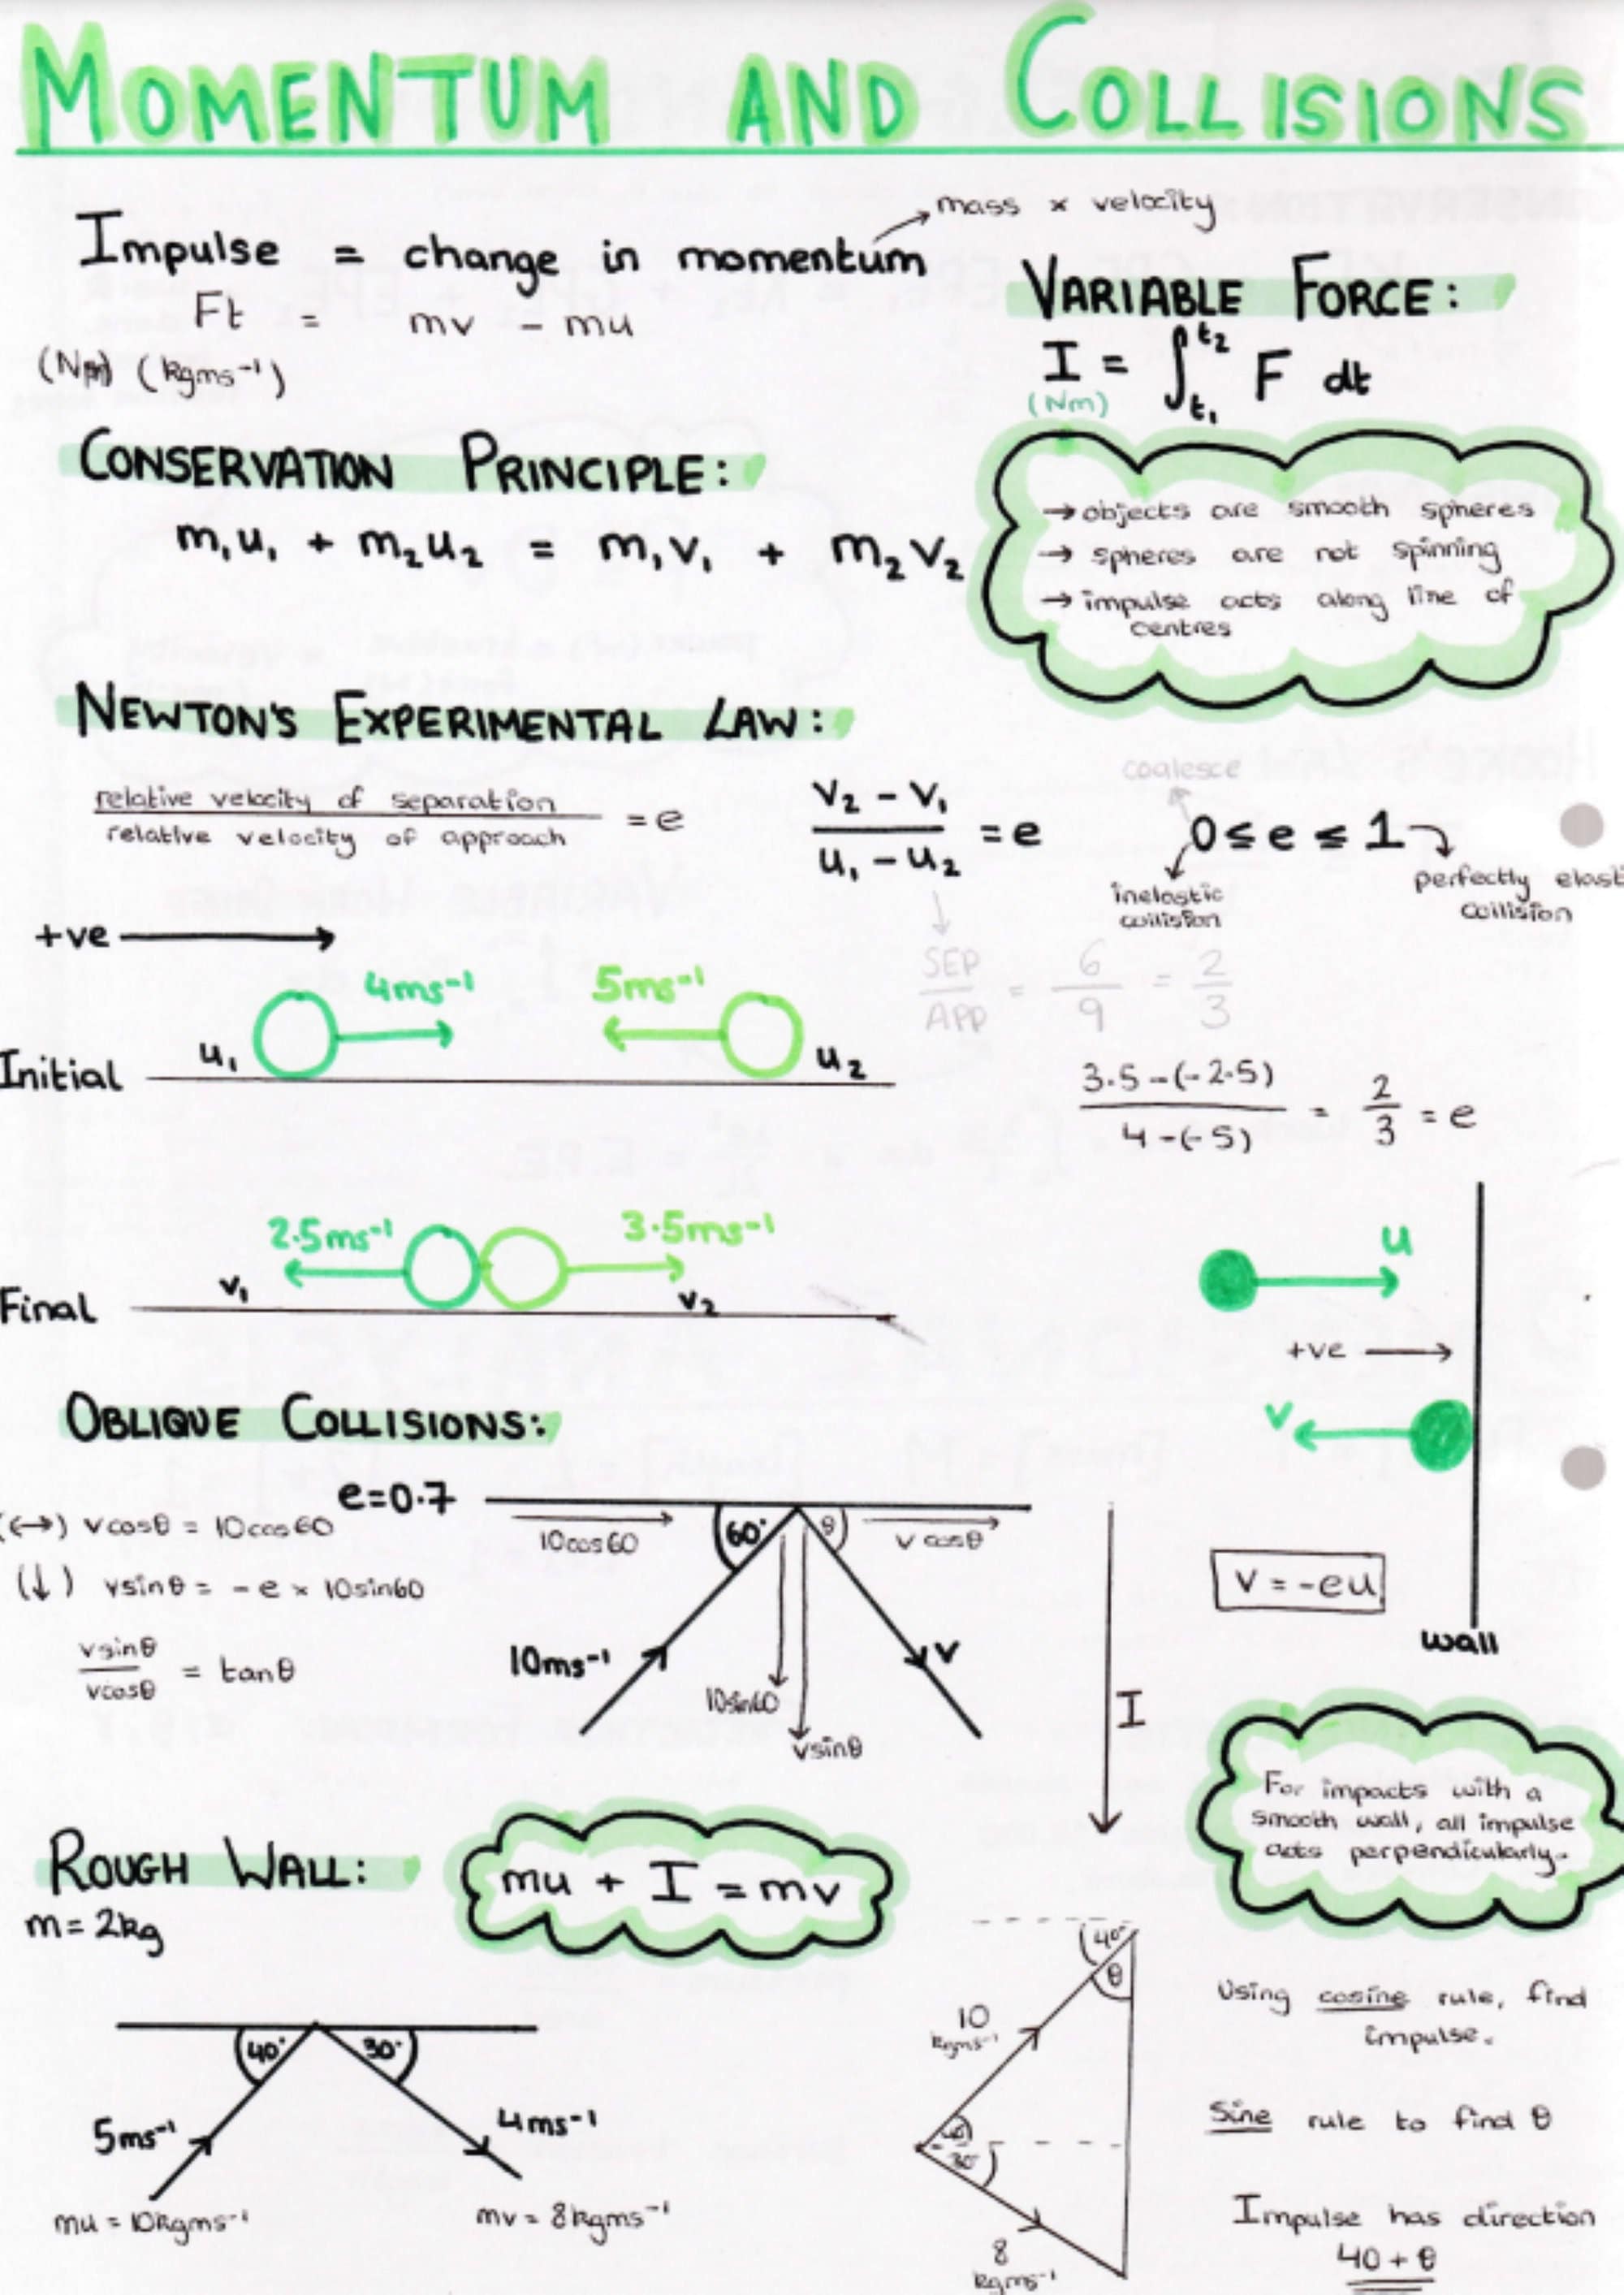 MOMENTUM AND COLLISIONS
mass × velocity
Impulse = change in momentum
Ft = mv - mu
(kgms⁻¹)
VARIABLE FORCE:
I = ∫ₜ₁ᵗ² F dt
(Nm)
CONSERVATION PRINCIPLE:
m₁u₁ + m₂u₂ = m₁v₁ + m₂v₂
→ objects are smooth spheres
→ spheres are not spinning
→ impulse acts along line of
centres
NEWTON'S EXPERIMENTAL LAW:
relative velocity of separation
relative velocity of approach
= e
v₂ - v₁
u₁ - u₂
= e
coalesce
0 ≤ e ≤ 1
inelastic
collision
perfectly elast
collision
+ve
SEP/APP = 6/9 = 2/3
4ms⁻¹
5ms⁻¹
u₁
u₂
Initial
3.5-(-2.5)
4-(-5)
= 2/3 = e
2.5ms⁻¹
3.5ms⁻¹
v₁
v₂
Final
u
+ve
v
v = -eu
wall
OBLIQUE COLLISIONS:
e=0.7
(↔) vcosθ = 10cos60
(↓) vsinθ = -e × 10sin60
vsinθ/vcosθ = tanθ
10cos60
60°
θ
v cosθ
10ms⁻¹
v
10sin60
vsinθ
I
For impacts with a
smooth wall, all impulse
acts perpendicularly.
ROUGH WALL:
mu + I = mv
m = 2kg
40°
30°
5ms⁻¹
4ms⁻¹
mu = 10kgms⁻¹
mv = 8kgms⁻¹
40°
θ
10
kgms⁻¹
30°
8
kgms⁻¹
Using cosine rule, find
impulse.
Sine rule to find θ
Impulse has direction
40 + θ